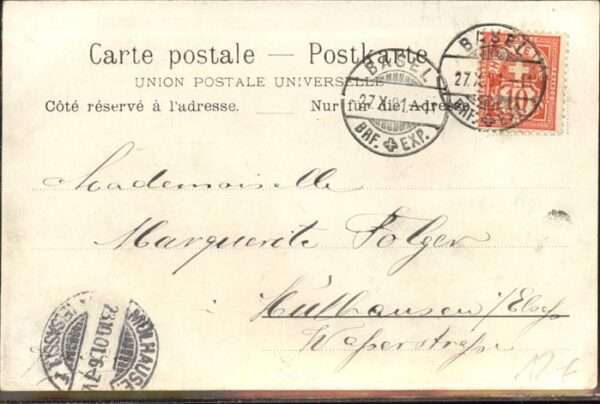 Carte postale — Postkarte
UNION POSTALE UNIVERSELLE
Côté réservé à l'adresse. — Nur für die Adresse.
BASEL
BRF. EXP.
BASEL
BRF. EXP.
10
Mademoiselle
Marguerite Folger
Mülhausen / Elsass
Weperstrasse
MÜLHAUSEN